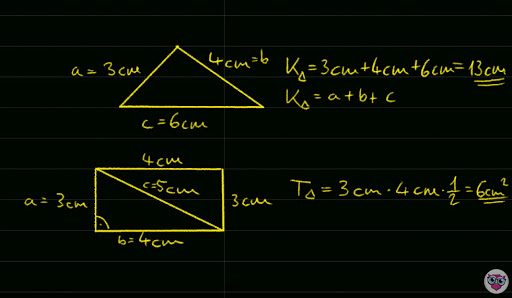 a = 3cm
4cm = b
c = 6cm
K△ = 3cm + 4cm + 6cm = 13cm
K△ = a + b + c
4cm
c = 5cm
a = 3cm
3cm
b = 4cm
T△ = 3cm · 4cm · 1/2 = 6cm²